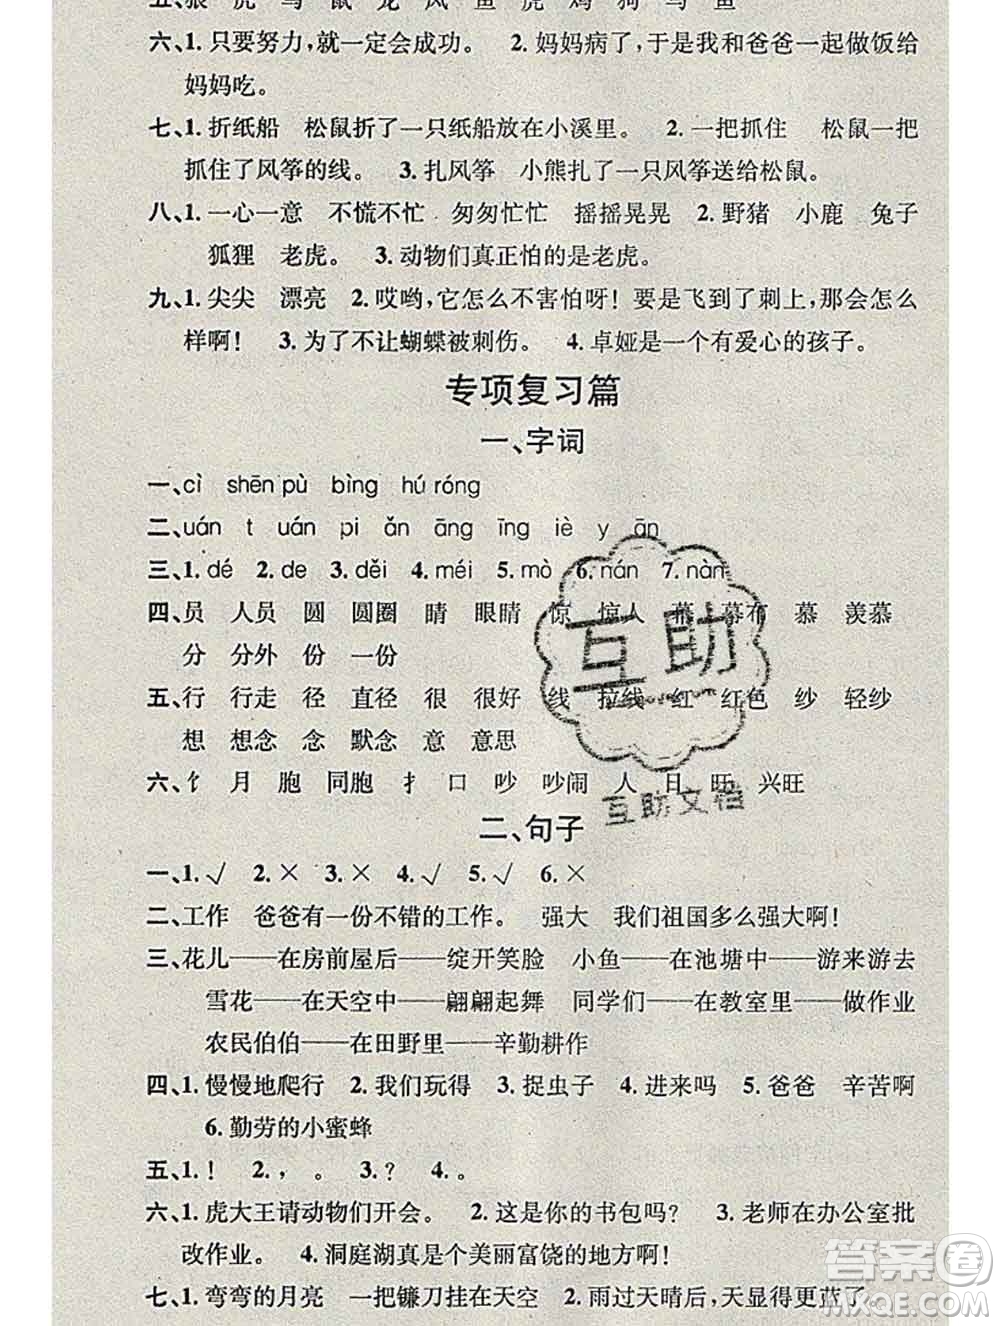 五、狼 虎 马 鼠 龙 凤 鱼 虎 鸡 狗 马 鱼
六、1. 只要努力,就一定会成功。 2. 妈妈病了,于是我和爸爸一起做饭给
妈妈吃。
七、1. 折纸船 松鼠折了一只纸船放在小溪里。 2. 一把抓住 松鼠一把
抓住了风筝的线。 3. 扎风筝 小熊扎了一只风筝送给松鼠。
八、1. 一心一意 不慌不忙 匆匆忙忙 摇摇晃晃 2. 野猪 小鹿 兔子
狐狸 老虎。 3. 动物们真正怕的是老虎。
九、1. 尖尖 漂亮 2. 哎哟,它怎么不害怕呀!要是飞到了刺上,那会怎么
样啊! 3. 为了不让蝴蝶被刺伤。 4. 卓娅是一个有爱心的孩子。
专项复习篇
一、字词
一、cì shēn pù bìng hú róng
二、uán t uán pi ǎn āng īng iè y ān
三、1. dé 2. de 3. děi 4. méi 5. mò 6. nán 7. nàn
四、员 人员 圆 圆圈 睛 眼睛 惊 惊人 幕 幕布 慕 羡慕
分 分外 份 一份
五、行 行走 径 直径 很 很好 线 拉线 红 红色 纱 轻纱
想 想念 念 默念 意 意思
六、饣 月 胞 同胞 扌 口 吵 吵闹 人 日 旺 兴旺
互助
互助文档
二、句子
一、1. √ 2. × 3. × 4. √ 5. √ 6. ×
二、工作 爸爸有一份不错的工作。 强大 我们祖国多么强大啊!
三、花儿——在房前屋后——绽开笑脸 小鱼——在池塘中——游来游去
雪花——在天空中——翩翩起舞 同学们——在教室里——做作业
农民伯伯——在田野里——辛勤耕作
四、1. 慢慢地爬行 2. 我们玩得 3. 捉虫子 4. 进来吗 5. 爸爸 辛苦啊
6. 勤劳的小蜜蜂
五、1. ! 2. , 。 3. ? 4. 。
六、1. 虎大王请动物们开会。 2. 这是你的书包吗? 3. 老师在办公室批
改作业。 4. 洞庭湖真是个美丽富饶的地方啊!
七、1. 弯弯的月亮 一把镰刀挂在天空 2. 雨过天晴后,天空显得更蓝了。
答案圈
MXQE.COM